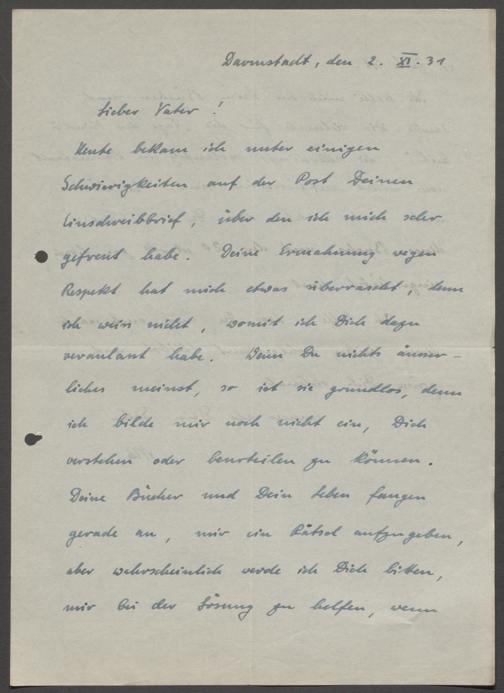 Darmstadt, den 2. XI. 31
Lieber Vater!
Heute bekam ich unter einigen
Schwierigkeiten auf der Post Deinen
Einschreibbrief, über den ich mich sehr
gefreut habe. Deine Ermahnung wegen
Respekt hat mich etwas überrascht, denn
ich weiss nicht, womit ich Dich dazu
veranlasst habe. Wenn Du nichts äusser-
liches meinst, so ist sie grundlos, denn
ich bilde mir noch nicht ein, Dich
verstehen oder beurteilen zu können.
Deine Bücher und Dein Leben fangen
gerade an, mir ein Rätsel aufzugeben,
aber wahrscheinlich werde ich Dich bitten,
mir bei der Lösung zu helfen, wenn